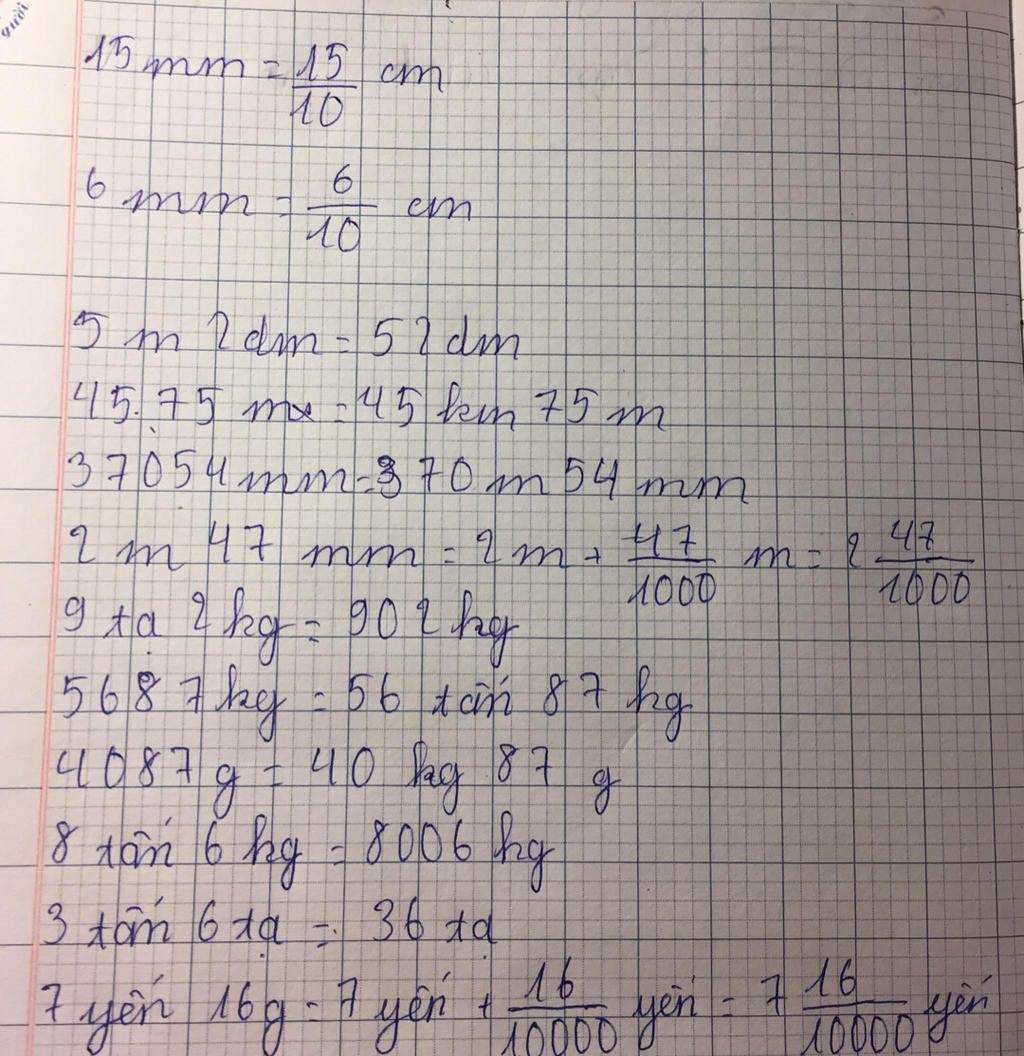 gười
15 mm = 15/10 cm
6 mm = 6/10 cm
5 m 2 dm = 52 dm
4575 m = 45 km 75 m
37054 mm = 370 m 54 mm
2 m 47 mm = 2 m + 47/1000 m = 2 47/1000
9 tạ 2 kg = 902 kg
5687 kg = 56 tấn 87 kg
4087 g = 40 kg 87 g
8 tấn 6 kg = 8006 kg
3 tấn 6 tạ = 36 tạ
7 yến 16 g = 7 yến + 16/10000 yến = 7 16/10000 yến